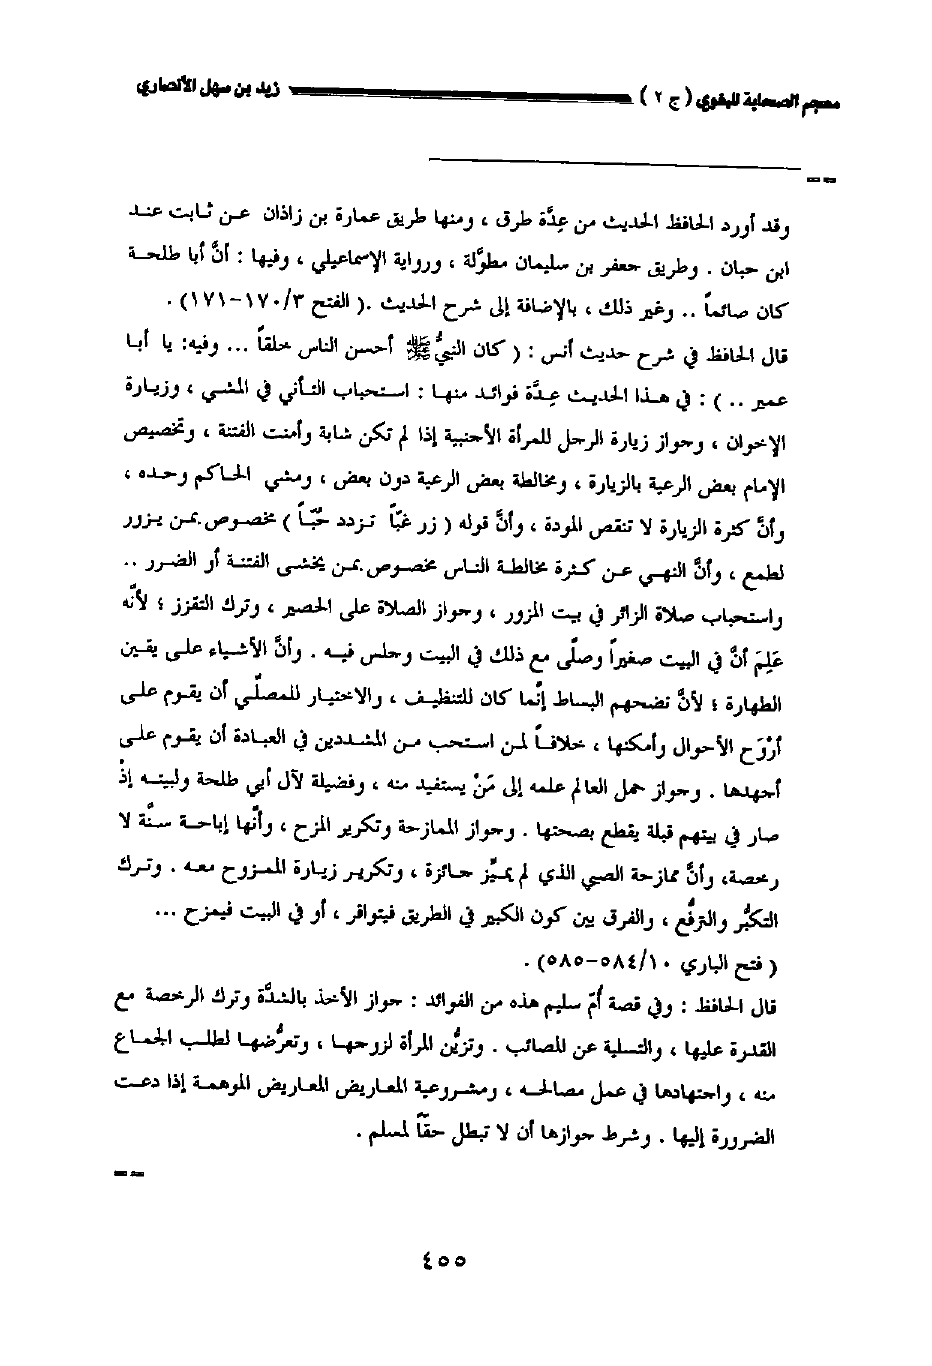 معجم الصحابة للبغوي ( ج ٢ ) زيد بن سهل الأنصاري
وقد أورد الحافظ الحديث من عِدَّة طرق ، ومنها طريق عمارة بن زاذان عن ثابت عند
ابن حبان . وطريق جعفر بن سليمان مطوَّلة ، ورواية الإسماعيلي ، وفيها : أنَّ أبا طلحة
كان صائماً .. وغير ذلك ، بالإضافة إلى شرح الحديث .( الفتح ٣/ ١٧٠-١٧١) .
قال الحافظ في شرح حديث أنس : ( كان النبيُّ ﷺ أحسن الناس خلقاً ... وفيه: يا أبا
عمير .. ) : في هذا الحديث عِدَّة فوائد منها : استحباب التأني في المشي ، وزيارة
الإخوان ، وجواز زيارة الرجل للمرأة الأجنبية إذا لم تكن شابة وأمنت الفتنة ، وتخصيص
الإمام بعض الرعية بالزيارة ، ومخالطة بعض الرعية دون بعض ، ومشي الحاكم وحده ،
وأنَّ كثرة الزيارة لا تنقص المودة ، وأنَّ قوله ( زر غبّاً تزدد حبّاً ) مخصوص بمن يزور
لطمع ، وأنَّ النهي عن كثرة مخالطة الناس مخصوص بمن يخشى الفتنة أو الضرر ..
واستحباب صلاة الزائر في بيت المزور ، وجواز الصلاة على الحصير ، وترك التقزز ؛ لأنَّه
عَلِمَ أنَّ في البيت صغيراً وصلّى مع ذلك في البيت وجلس فيه . وأنَّ الأشياء على يقين
الطهارة ؛ لأنَّ نضحهم البساط إنّما كان للتنظيف ، والاختيار للمصلّي أن يقوم على
أرْوَح الأحوال وأمكنها ، خلافاً لمن استحب من المشددين في العبادة أن يقوم على
أجهدها . وجواز حمل العالم علمه إلى مَنْ يستفيد منه ، وفضيلة لآل أبي طلحة ولبيته إذْ
صار في بيتهم قبلة يقطع بصحتها . وجواز الممازحة وتكرير المزح ، وأنّها إباحة سنَّة لا
رخصة، وأنَّ ممازحة الصبي الذي لم يميِّز جائزة ، وتكرير زيارة الممزوح معه . وترك
التكبُّر والترفُّع ، والفرق بين كون الكبير في الطريق فيتواقر ، أو في البيت فيمزح ...
( فتح الباري ١٠/ ٥٨٤-٥٨٥) .
قال الحافظ : وفي قصة أمّ سليم هذه من الفوائد : جواز الأخذ بالشدَّة وترك الرخصة مع
القدرة عليها ، والتسلية عن المصائب . وتزيُّن المرأة لزوجها ، وتعرُّضها لطلب الجماع
منه ، واجتهادها في عمل مصالحه ، ومشروعية المعاريض المعاريض الموهمة إذا دعت
الضرورة إليها . وشرط جوازها أن لا تبطل حقّاً لمسلم .
٤٥٥